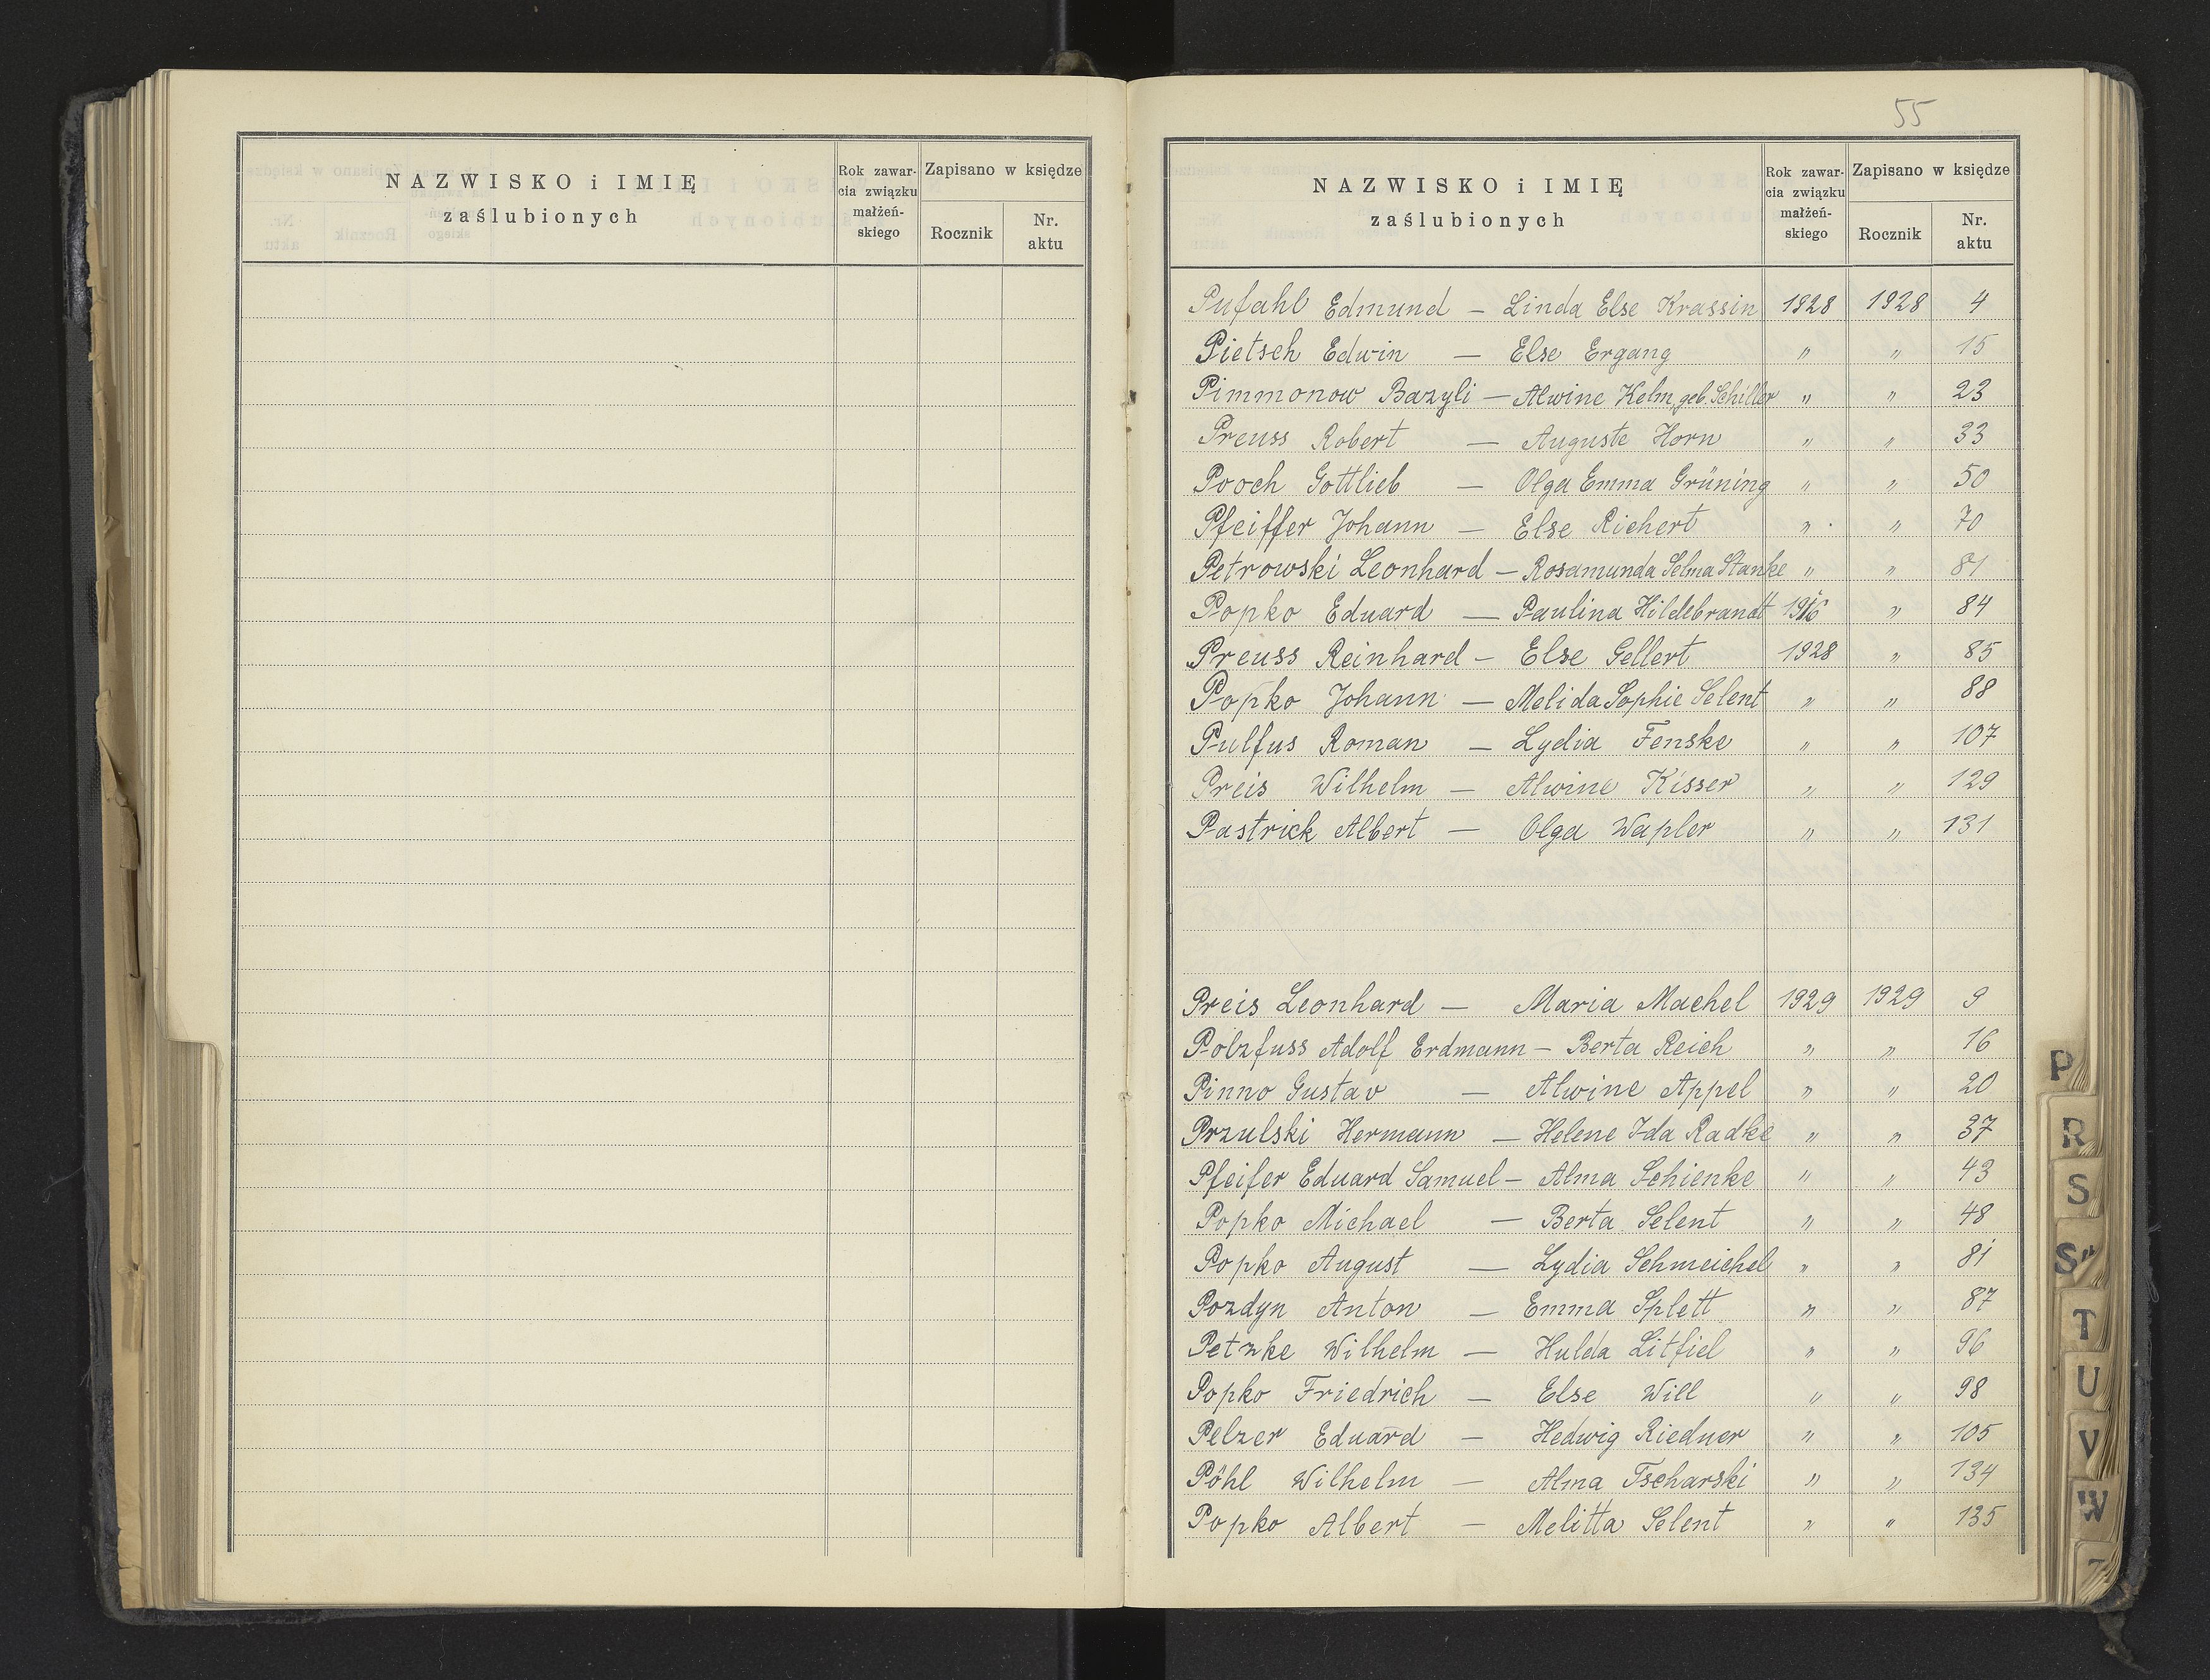 NAZWISKO i IMIĘ
zaślubionych
Rok zawar-
cia związku
małżeń-
skiego
Zapisano w księdze
Rocznik
Nr.
aktu
55
NAZWISKO i IMIĘ
zaślubionych
Rok zawar-
cia związku
małżeń-
skiego
Zapisano w księdze
Rocznik
Nr.
aktu
Pufahl Edmund — Linda Else Krassin 1928 1928 4
Pietsch Edwin — Else Ergang " " 15
Pimmonow Bazyli — Alwine Kelm, geb. Schiller " " 23
Preuss Robert — Auguste Horn " " 33
Pooch Gottlieb — Olga Emma Grüning " " 50
Pfeiffer Johann — Else Richert " " 70
Petrowski Leonhard — Rosamunda Selma Stanke " " 81
Popko Eduard — Paulina Hildebrandt 1916 " 84
Preuss Reinhard — Else Gellert 1928 " 85
Popko Johann — Melida Sophie Selent " " 88
Pulfus Roman — Lydia Fenske " " 107
Preis Wilhelm — Alwine Kisser " " 129
Pastrick Albert — Olga Wapler " " 131
Preis Leonhard — Maria Machel 1929 1929 9
Pölzfuss Adolf Erdmann — Berta Reich " " 16
Pinno Gustav — Alwine Appel " " 20
Przulski Hermann — Helene Ida Radke " " 37
Pfeifer Eduard Samuel — Alma Schienke " " 43
Popko Michael — Berta Selent " " 48
Popko August — Lydia Schmeichel " " 81
Pozdyn Anton — Emma Splett " " 87
Petzke Wilhelm — Hulda Litfiel " " 96
Popko Friedrich — Else Will " " 98
Pelzer Eduard — Hedwig Riedner " " 105
Pöhl Wilhelm — Alma Tscharski " " 134
Popko Albert — Melitta Selent " " 135
P
R
S
S"
T
U
V
W